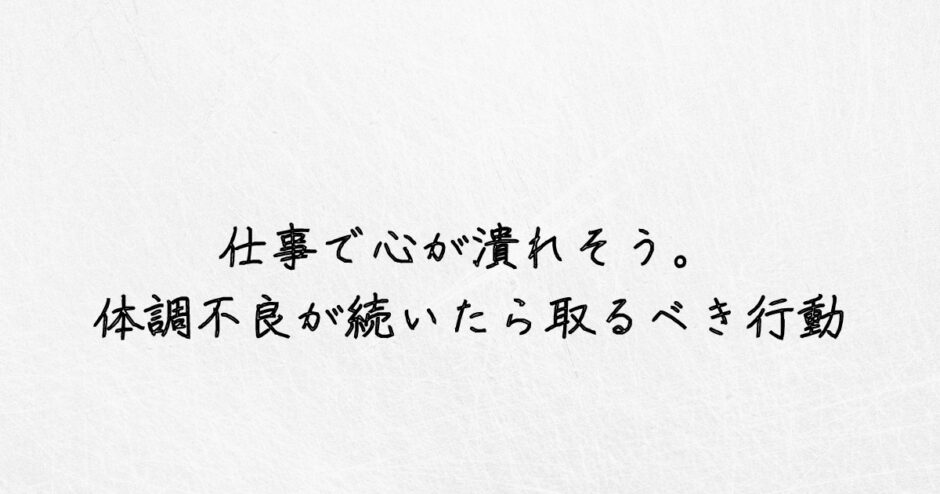 仕事で心が潰れそう。
体調不良が続いたら取るべき行動